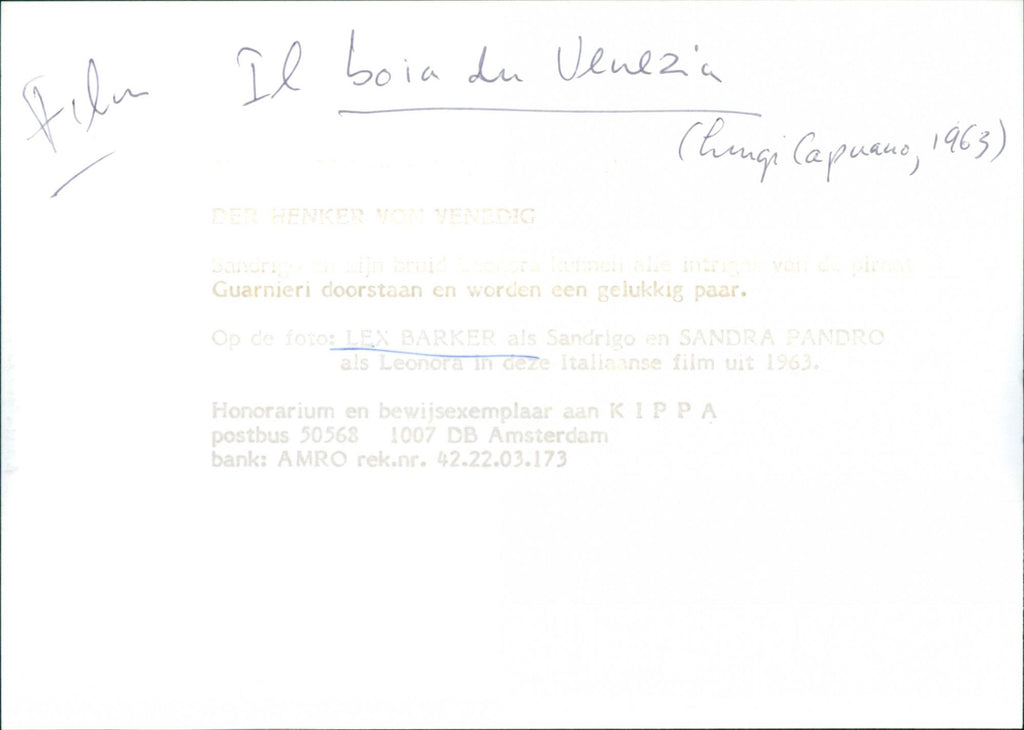 Film Il boia di Venezia
(Luigi Capuano, 1963)
DER HENKER VON VENEDIG
Sandrigo en zijn bruid Leonora kunnen alle intriges van de piraat
Guarnieri doorstaan en worden een gelukkig paar.
Op de foto: LEX BARKER als Sandrigo en SANDRA PANDRO
als Leonora in deze Italiaanse film uit 1963.
Honorarium en bewijsexemplaar aan K I P P A
postbus 50568 1007 DB Amsterdam
bank: AMRO rek.nr. 42.22.03.173